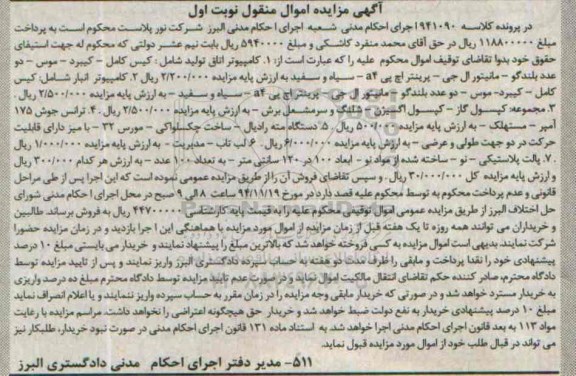 آگهی مزایده اموال منقول نوبت اول
در پرونده کلاسه ۹۴۱۰۹۰ اجرای احکام مدنی شعبه اجرای احکام مدنی البرز شرکت نور پلاست محکوم است به پرداخت
مبلغ ۱۱۸۸۰۰۰۰۰ ریال در حق آقای محمد منفرد کاشکی و مبلغ ۵۹۴۰۰۰۰ ریال بابت نیم عشر دولتی که محکوم له جهت استیفای
حقوق خود بدوا تقاضای توقیف اموال محکوم علیه را که عبارت است از: ۱. کامپیوتر اتاق تولید شامل: کیس کامل - کیبرد - موس - دو
عدد بلندگو - مانیتور ال جی - پرینتر اچ پی a۴ - سیاه و سفید به ارزش پایه مزایده ۲/۲۰۰/۰۰۰ ریال ۲. کامپیوتر انبار شامل: کیس
کامل - کیبرد- موس - دو عدد بلندگو - مانیتور ال جی - پرینتر اچ پی a۴ - سیاه و سفید - به ارزش پایه مزایده ۲/۵۰۰/۰۰۰ ریال .
۳. مجموعه: کپسول گاز - کپسول اکسیژن - شلنگ و سرمشعل برش - به ارزش پایه مزایده ۲/۵۰۰/۰۰۰ ریال . ۴. ترانس جوش ۱۷۵
آمپر - مستهلک - به ارزش پایه مزایده ۵۰۰/۰۰۰ ریال . ۵. دستگاه مته رادیال - ساخت چکسلواکی - مورس ۳۲ - با میز دارای قابلیت
حرکت در دو جهت طولی و عرضی - به ارزش پایه مزایده ۶/۰۰۰/۰۰۰ ریال . ۶. لپ تاپ - مدیریت - به ارزش پایه مزایده ۱/۰۰۰/۰۰۰ ریال
۷. پالت پلاستیکی - نو - ساخته شده از مواد نو - ابعاد ۱۰۰ در ۱۲۰ سانتی متر - به تعداد ۱۰۰ عدد - به ارزش هر کدام ۳۰۰/۰۰۰ ریال
و ارزش پایه مزایده کل ۳۰/۰۰۰/۰۰۰ ریال . و سپس تقاضای فروش آن را از طریق مزایده عمومی نموده است که این اجرا پس از طی مراحل
قانونی و عدم پرداخت محکوم به توسط محکوم علیه قصد دارد در مورخ ۹۴/۱۱/۱۹ ساعت ۸ الی ۹ صبح در محل اجرای احکام مدنی شورای
حل اختلاف البرز از طریق مزایده عمومی اموال توقیفی محکوم علیه را به قیمت پایه کارشناسی ۴۴۷۰۰۰۰۰ ریال به فروش برساند. طالبین
و خریداران می توانند همه روزه تا یک هفته قبل از زمان مزایده از اموال مورد مزایده با هماهنگی این اجرا بازدید و در زمان مزایده حضورا
شرکت نمایند. بدیهی است اموال مزایده به کسی فروخته خواهد شد که بالاترین مبلغ را پیشنهاد نمایند و خریدار می بایستی مبلغ ۱۰ درصد
پیشنهادی خود را نقدا پرداخت و مابقی را ظرف مدت دو هفته به حساب سپرده دادگستری البرز واریز نمایند و پس از تایید مزایده توسط
دادگاه محترم، صادر کننده حکم تقاضای انتقال مالکیت اموال نماید و در صورت عدم تایید مزایده توسط دادگاه محترم مبلغ ده درصد واریزی
به خریدار مسترد خواهد شد و در صورتی که خریدار مابقی وجه مزایده را در زمان مقرر به حساب سپرده واریز ننمایند و یا اعلام انصراف نماید
مبلغ ۱۰ درصد پیشنهادی خریدار به نفع دولت ضبط خواهد شد و خریدار حق هیچگونه اعتراضی را نخواهد داشت. مراسم مزایده با رعایت
مواد ۱۱۳ به بعد قانون اجرای احکام مدنی اجرا خواهد شد. به استناد ماده ۱۳۱ قانون اجرای احکام مدنی در صورت نبود خریدار، طلبکار نیز
می تواند در قبال طلب خود از اموال مورد مزایده قبول نماید.
۵۱۱- مدیر دفتر اجرای احکام مدنی دادگستری البرز